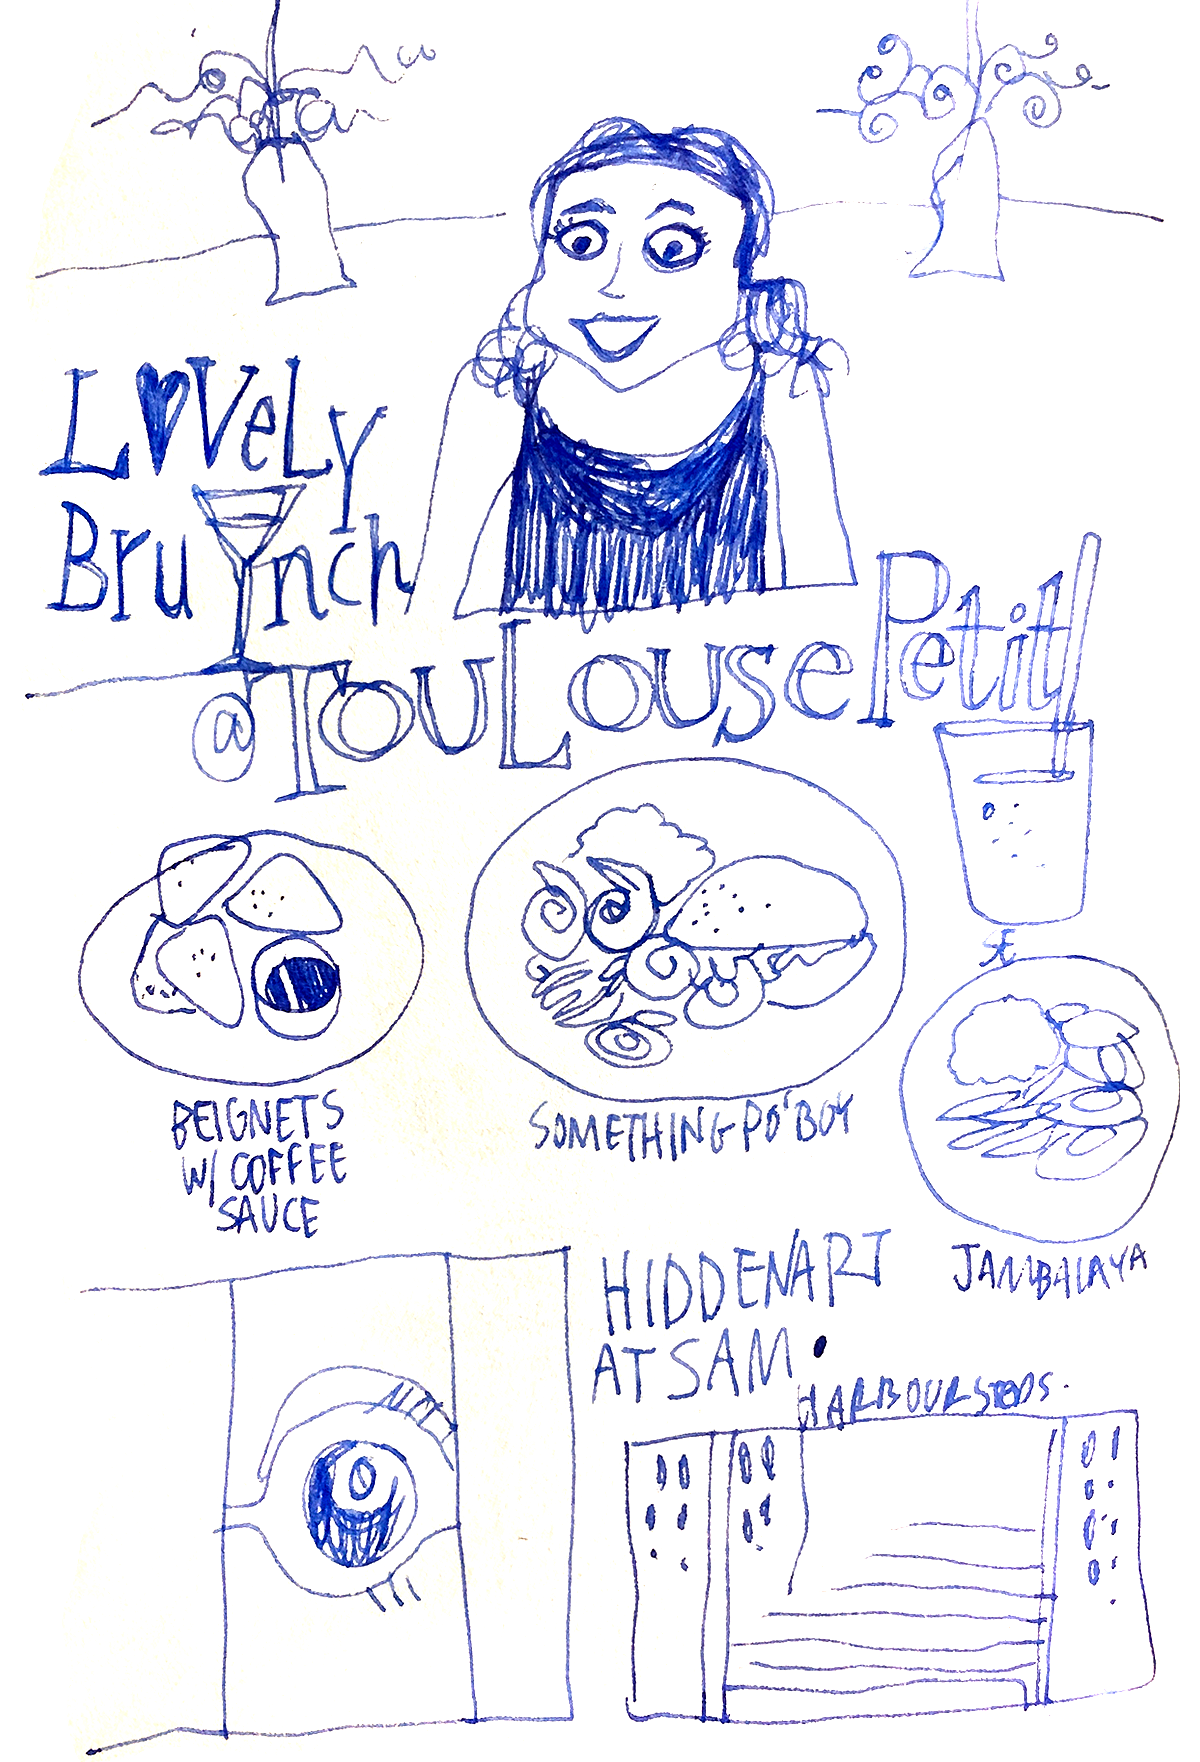 LOVeLy
Brunch
@TOULOUSe Petit
BEIGNETS
W/ COFFEE
SAUCE
SOMETHING PO'BOY
JAMBALAYA
HIDDEN ART
AT SAM.
HARBOUR STEPS.